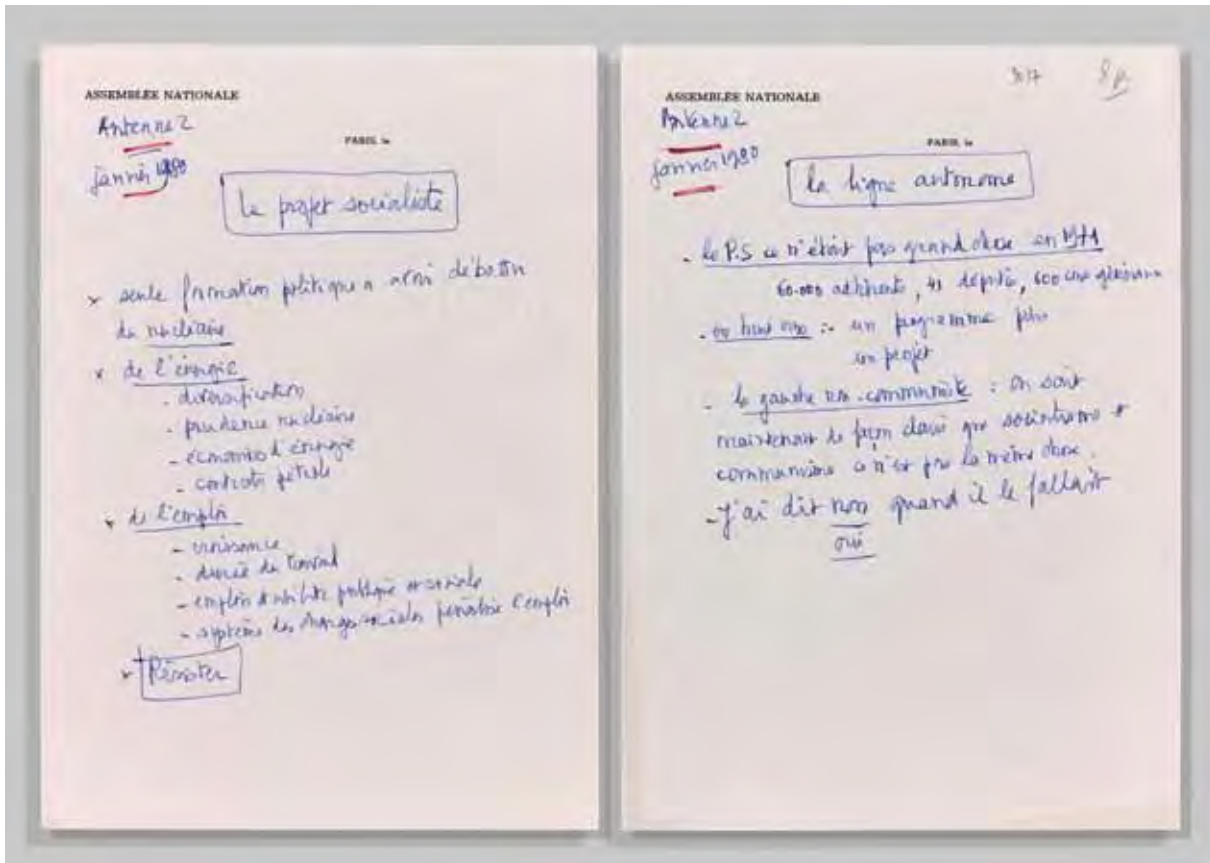 ASSEMBLÉE NATIONALE
Antenne 2
PARIS, le
janvier 1980
le projet socialiste
x seule formation politique a avoir débattu
du nucléaire
x de l'énergie
- diversification
- prudence nucléaire
- économies d'énergie
- contrats pétrole
x de l'emploi
- croissance
- durée du travail
- emplois d'utilité publique et sociale
- système des charges sociales pénalise l'emploi
x Résister
3017
8 p
ASSEMBLÉE NATIONALE
Antenne 2
PARIS, le
janvier 1980
la ligne autonome
- le P.S ce n'était pas grand chose en
60.000 adhérents, 41 députés, 600 généraux
- : un programme puis
un projet
- la gauche non-communiste : on sait
maintenant de façon claire que socialisme et
communisme ce n'est pas la même chose.
- J'ai dit non quand il le fallait
oui